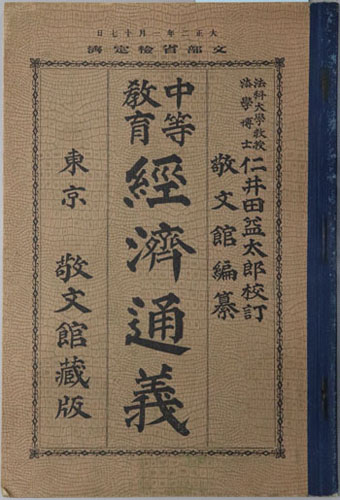 大正二年一月十七日
文部省檢定濟
法科大學教授
法學博士
仁井田益太郎校訂
敬文館編纂
中等
教育
經濟通義
東京 敬文館藏版